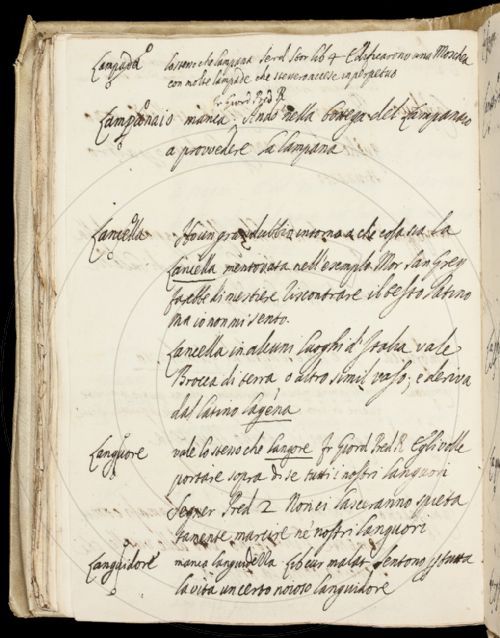 Lampada lo stesso che lampana Serd. Stor. lib. 4 Edificarono una Moschea
con molte lampade che stevero accese in perpetuo
Fr. Giord. Pred. R.
Lampanaio manca. Andò nella bottega del Lampanaio
a provvedere la lampana
Lancella Ho un gran dubbio intorno a che cosa sia la
Lancella mentovata nell'esempio Mor. San Greg.
sarebbe di mestiere riscontrare il testo latino
ma io non mi sento.
Lancella in alcuni luoghi d'Italia vale
Brocca di terra o altro simil vaso; e deriva
dal latino lagena
Languore vale lo stesso che langore Fr. Giord. Pred. R. Egli volle
portare sopra di se tutti i nostri languori
Segner. Pred. 2 Non ci lasceranno spieta
tamente marcire ne' nostri languori
Languidore manca languidezza Lib. cur. malatt. Sentono p. tutta
la vita un certo noioso languidore